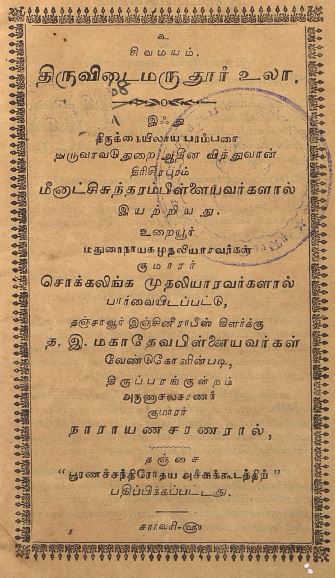 உ
சிவமயம்.
திருவிடைமருதூர் உலா.
இஃது
திருக்கைலாய பரம்பரை
துருவாவடுதுறை ஆதீன வித்துவான்
திரிசிரபுரம்
மீனாட்சிசுந்தரம்பிள்ளையவர்களால்
இயற்றியது.
உறையூர்
மதுரைநாயகமுதலியாரவர்கள்
குமாரர்
சொக்கலிங்க முதலியாரவர்களால்
பார்வையிடப்பட்டு,
தஞ்சாவூர் இஞ்சினீராபீஸ் கிளர்க்கு
த. இ. மகாதேவபிள்ளையவர்கள்
வேண்டுகோளின்படி,
திருப்பரங்குன்றம்
அருணாசலசரணர்
குமாரர்
நாராயணசரணரால்,
தஞ்சை
"பூரணச்சந்திரோதய அச்சுக்கூடத்திற்"
பதிப்பிக்கப்பட்டது.
சார்வரி-௵